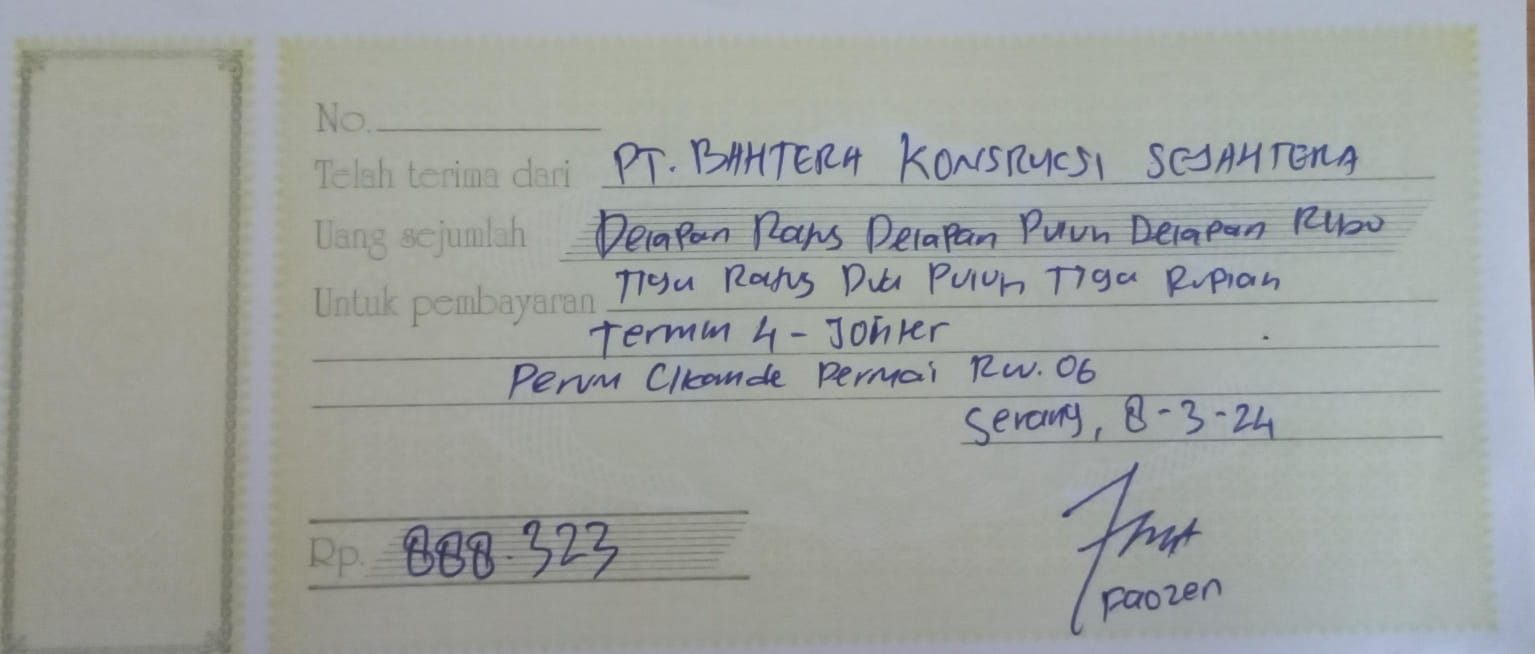 No.
Telah terima dari PT. BAHTERA KONSRUKSI SEJAHTERA
Uang sejumlah Delapan Ratus Delapan Puluh Delapan Ribu
Untuk pembayaran Tiga Ratus Dua Puluh Tiga Rupiah
Termin 4 - Johter
Perum Cikande Permai Rw. 06
Serang, 8-3-24
Rp. 888.323
Paozen